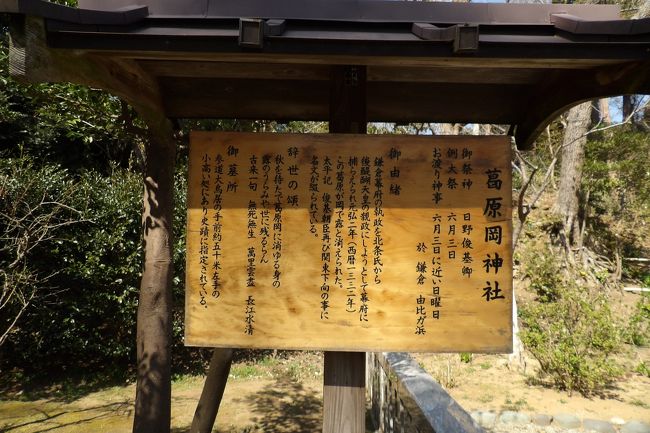 葛原岡神社
御祭神　日野俊基卿
例太祭　六月三日
お渡り神事　六月三日に近い日曜日
於　鎌倉　由比ガ浜
御由緒
鎌倉幕府の執政を北条氏から
後醍醐天皇の親政にしようとして幕府に
捕らえられ元弘二年（西暦一三三二年）
この葛原が岡で露と消えられた。
太平記　俊基朝臣再び関東下向の事に
名文が綴られている。
辞世の頌
秋を待たで葛原岡に消ゆる身の
露のうらみや世に残るらん
古来一句　無死無生　萬里雲盡　長江水清
御墓所
参道大鳥居の手前約五十米左手の
小高い処にあり史蹟に指定されている。